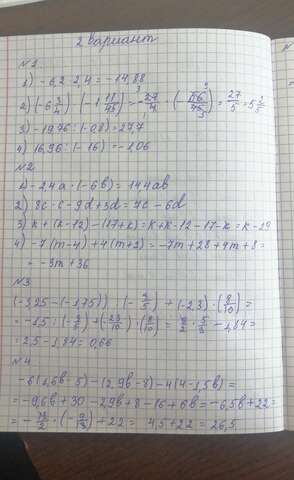 2 вариант
№1
1) -6,2 · 2,4 = -14,88
2) (-6 3/4) · (-1 11/45) = -27/4 · (-56/45) = 27/5 = 5 2/5
3) -19,76 : (-0,8) = 24,7
4) 16,96 : (-16) = -1,06
№2
1) -2,4a · (-6b) = 14,4ab
2) 8c - c - 9d + 3d = 7c - 6d
3) k + (k-12) - (17+k) = k + k - 12 - 17 - k = k - 29
4) -7(m-4) + 4(m+2) = -7m + 28 + 4m + 8 =
= -3m + 36
№3
(-3,25 - (-1,75)) : (-3/5) + (-2,3) · (8/10) =
= -1,5 : (-3/5) + (-23/10) · (8/10) = 3/2 · 5/3 - 1,84 =
= 2,5 - 1,84 = 0,66
№4
-6(1,6b - 5) - (2,9b - 8) - 4(4 - 1,5b) =
= -9,6b + 30 - 2,9b + 8 - 16 + 6b = -6,5b + 22 =
= -13/2 · (-9/13) + 22 = 4,5 + 22 = 26,5